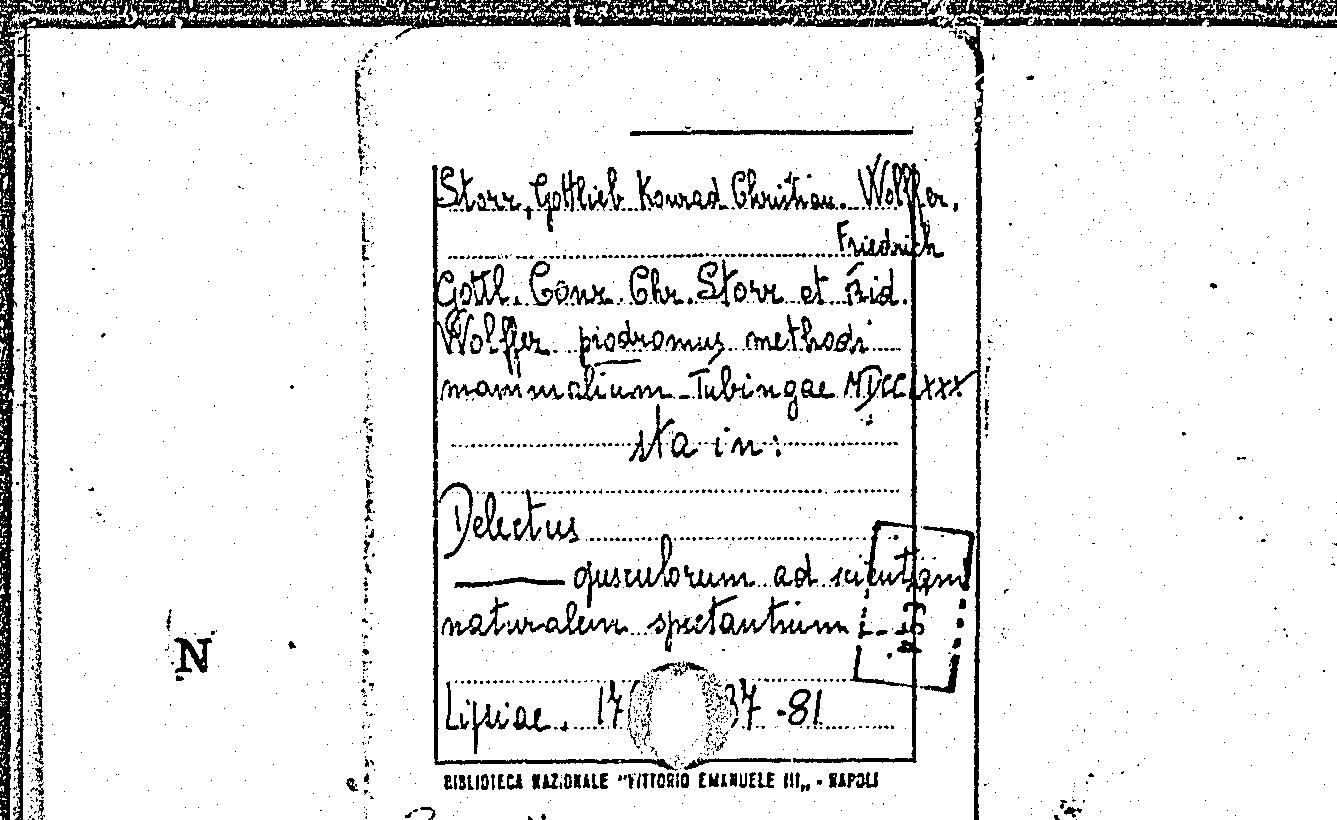 Storr, Gottlieb Konrad Christian. Wolffer,
Friedrich
Gottl. Conr. Chr. Storr et Frid.
Wolffer prodromus methodi
mammalium Tubingae MDCCLXXX
sta in:
Delectus
opusculorum ad scientiam
naturalem spectantium
Lipsiae. 37-81
N
BIBLIOTECA NAZIONALE "VITTORIO EMANUELE III„ - NAPOLI